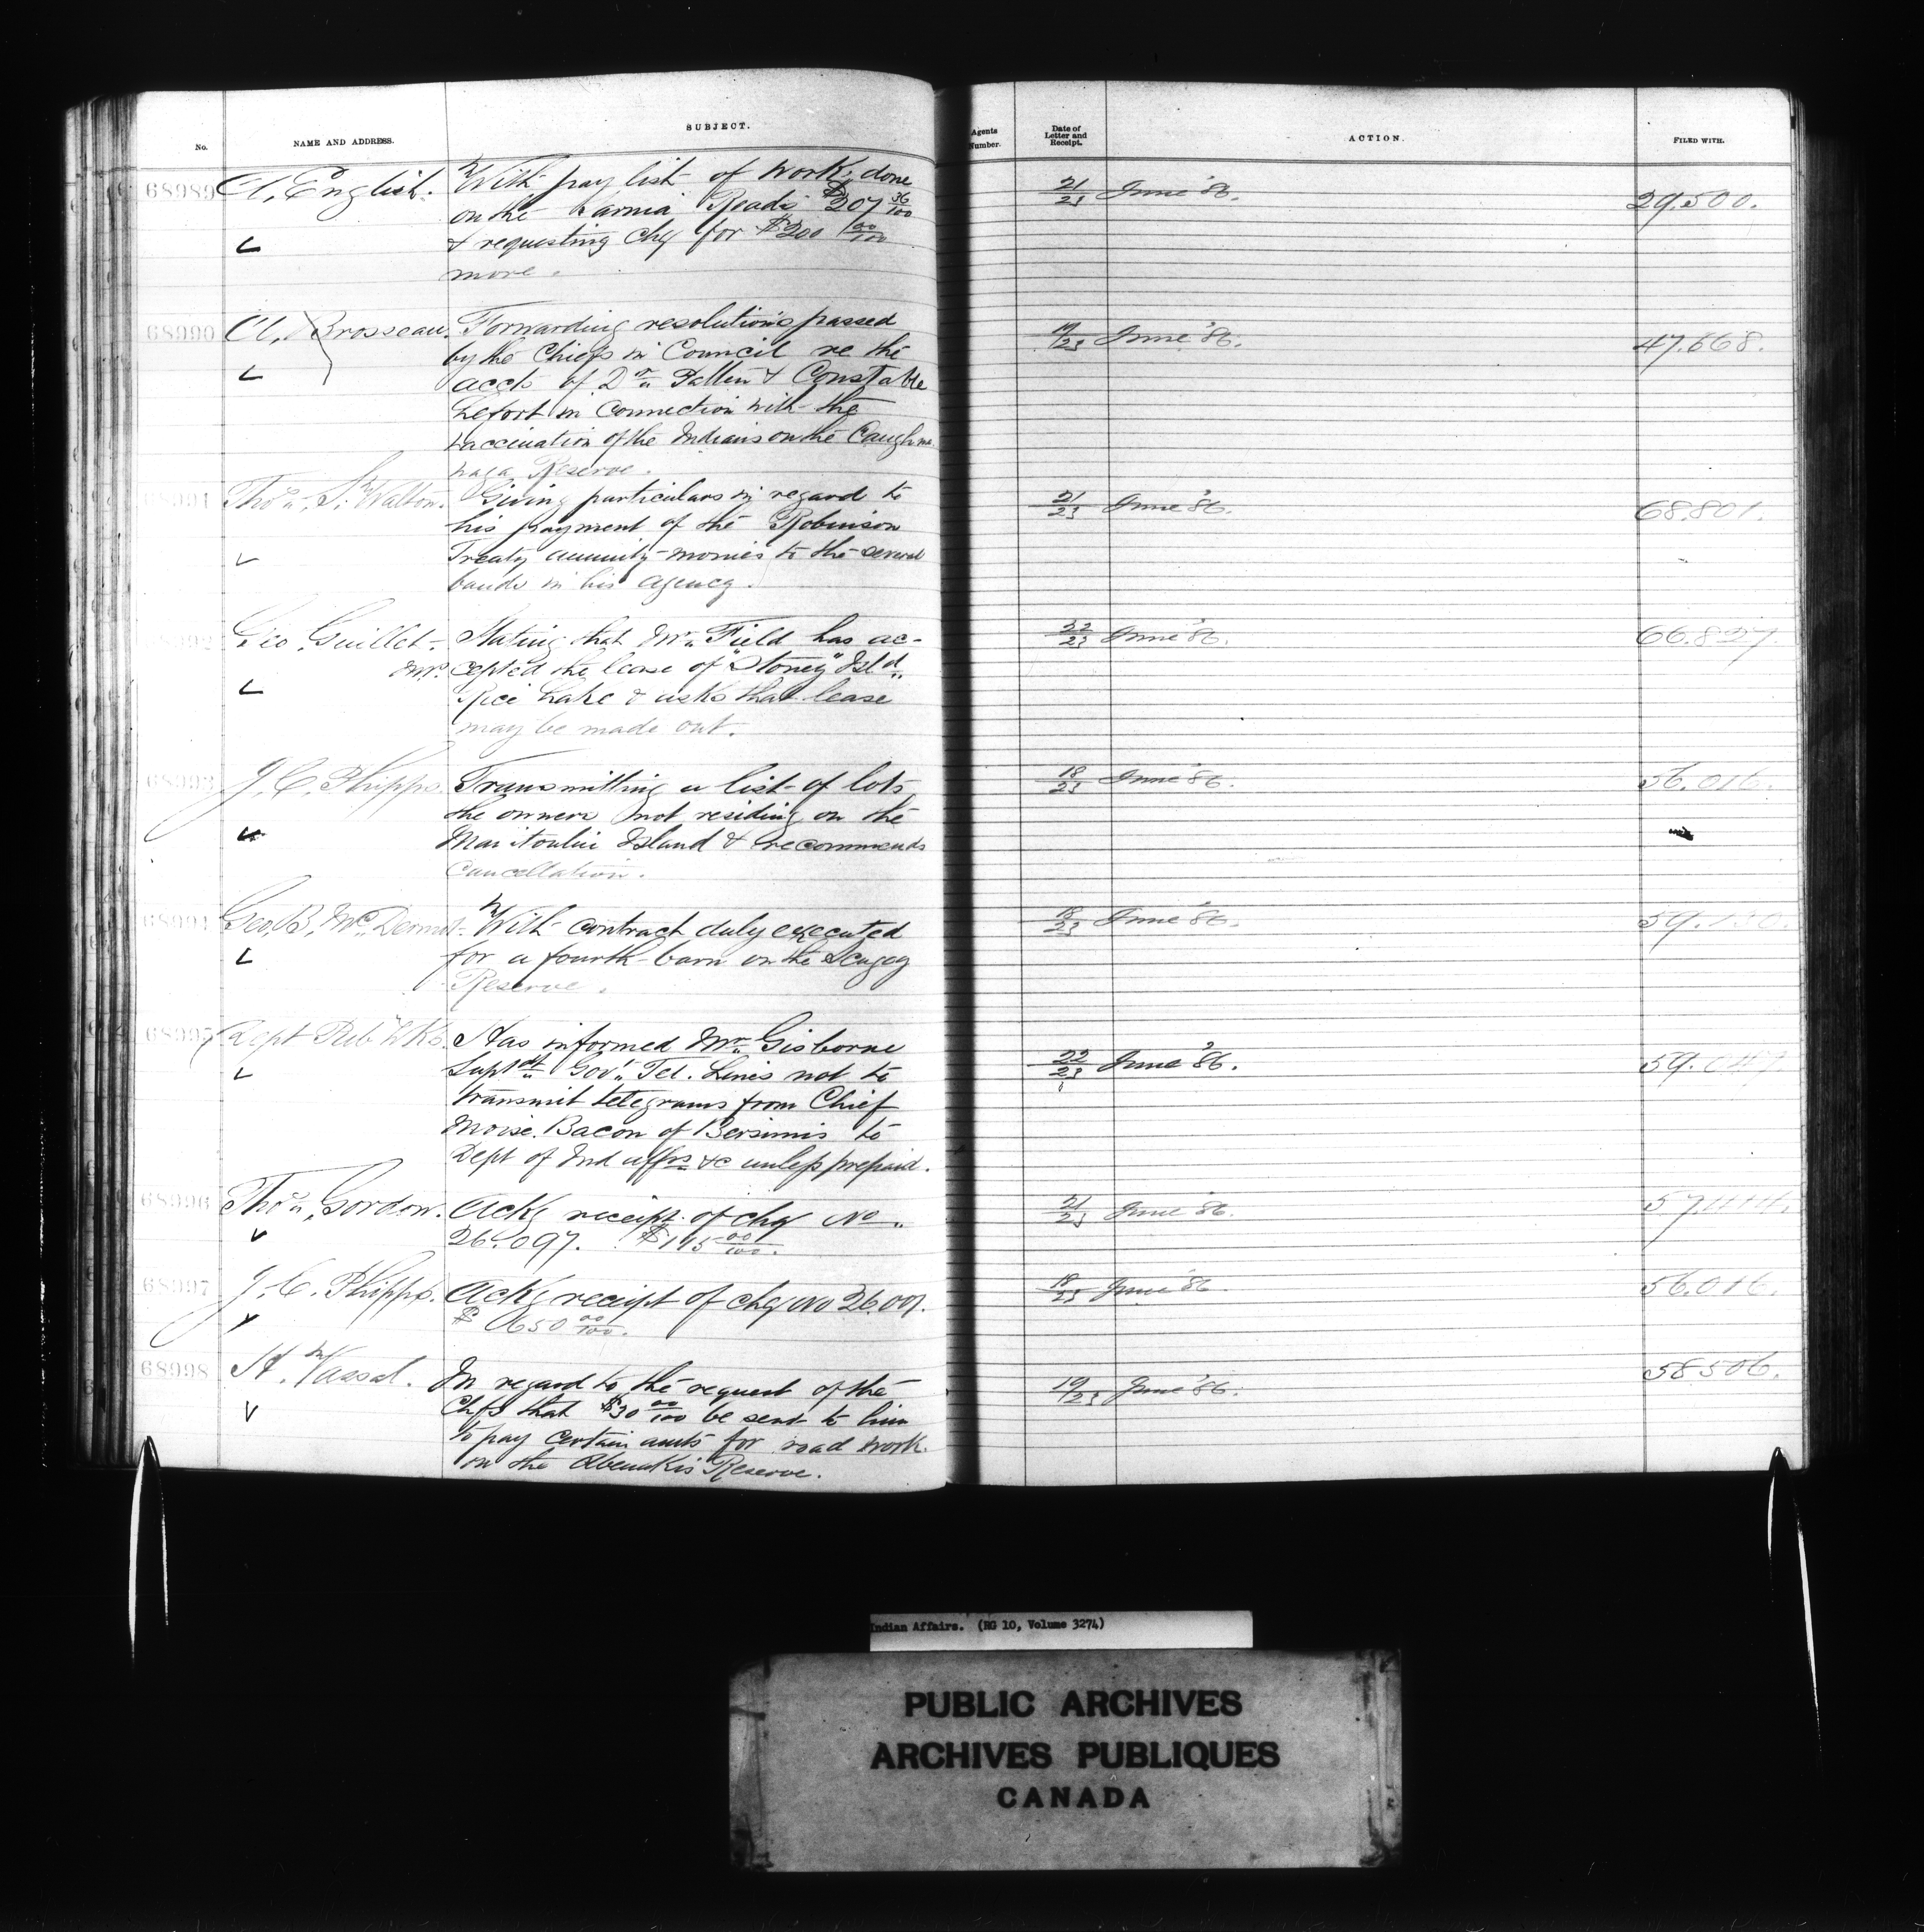 No. NAME AND ADDRESS. SUBJECT. Agents Number. Date of Letter and Receipt. ACTION. FILED WITH.
68989 A. English. With pay list of work done 21/23 June '86. 29.500.
on the Sarnia Roads $207 36/100
& requesting chq for $200 00/100
more.
68990 A. Brosseau. Forwarding resolutions passed 19/23 June '86. 47.668.
by the Chiefs in Council re the
accts of Dr. Patten & Constable
Lefort in connection with the
vaccination of the Indians on the Caughna
waga Reserve.
68991 Thos. S. Walton. Giving particulars in regard to 21/23 June '86. 68.801.
his payment of the Robinson
Treaty annuity monies to the several
bands in his agency.
68992 Geo. Guillet. Stating that Mr. Field has ac- 22/23 June '86. 66.827.
M.P. cepted the lease of "Stoney" Isld.
Rice Lake & asks that lease
may be made out.
68993 J. C. Phipps. Transmitting a list of lots 18/23 June '86. 56.016.
the owners not residing on the
Manitoulin Island & recommends
cancellation.
68994 Geo. B. McDermot. With contract duly executed 18/23 June '86.
for a fourth barn on the Scugog
Reserve.
68995 Dept Pub. Wks. Has informed Mr. Gisborne 22/23 June '86.
Suptdt. Govt. Tel. Lines not to
transmit telegrams from Chief
Moise Bacon of Bersimis to
Dept of Ind affrs &c unless prepaid.
68996 Thos. Gordon. Ackg receipt of chq No. 21/23 June '86.
26.097. $115 00/100.
68997 J. C. Phipps. Ackg receipt of chq No 26.007. 18/23 June '86. 56.016.
$ 650 00/100.
68998 H. Vassal. In regard to the request of the 19/23 June '86. 58506.
Chfs that $30 00/100 be sent to him
to pay certain amts for road work
on the Abenakis Reserve.
Indian Affairs. (RG 10, Volume 3274)
PUBLIC ARCHIVES
ARCHIVES PUBLIQUES
CANADA